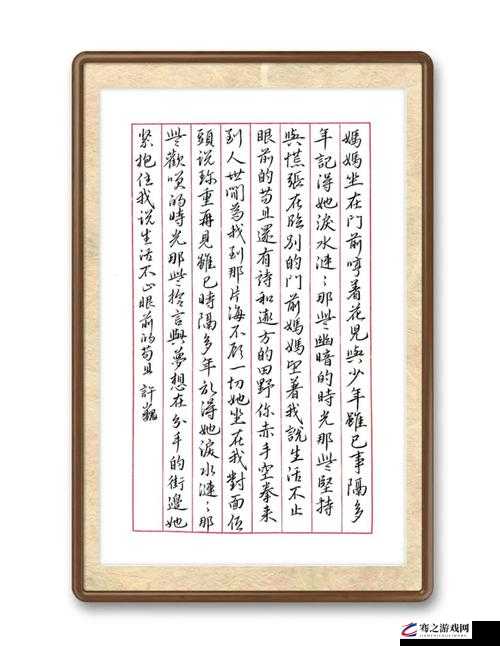 媽媽坐在門前哼着花兒與少年雖已事隔多
年記得她淚水漣〻那些幽暗的時光那些堅持
與慌張在臨別的門前媽媽望着我說生活不止
眼前的苟且還有詩和遠方的田野你赤手空拳來
到人世間爲找到那片海不顧一切她坐在我對面低
頭说珍重再見雖已時隔多年記得她淚水漣〻那
些歡嘆的時光那些誓言與夢想在分手的街邊她
紧抱住我说生活不止眼前的苟且 許巍
骞之游戏网